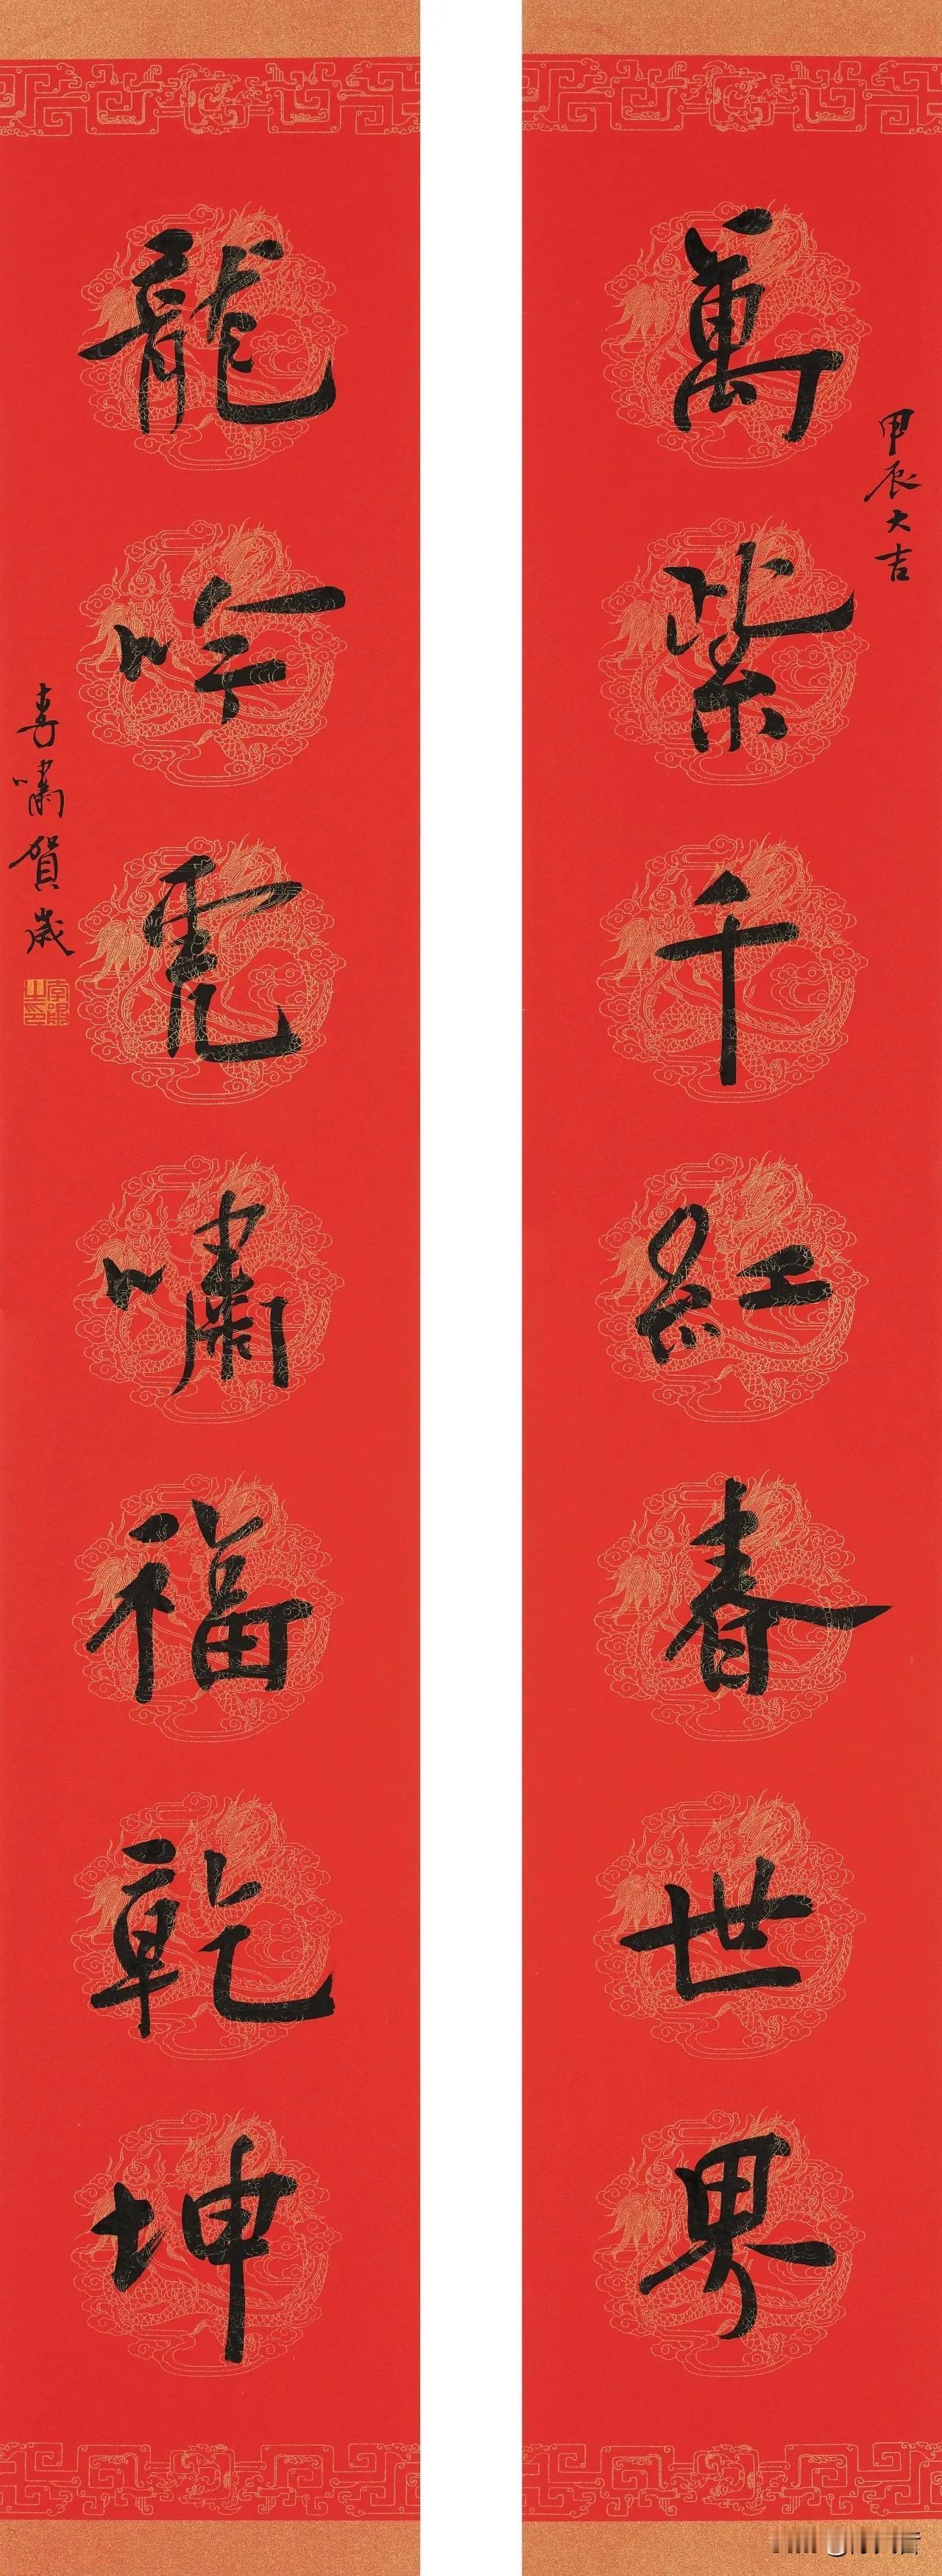 萬紫千紅春世界
甲辰大吉
龍吟虎嘯福乾坤
嘯賀歲